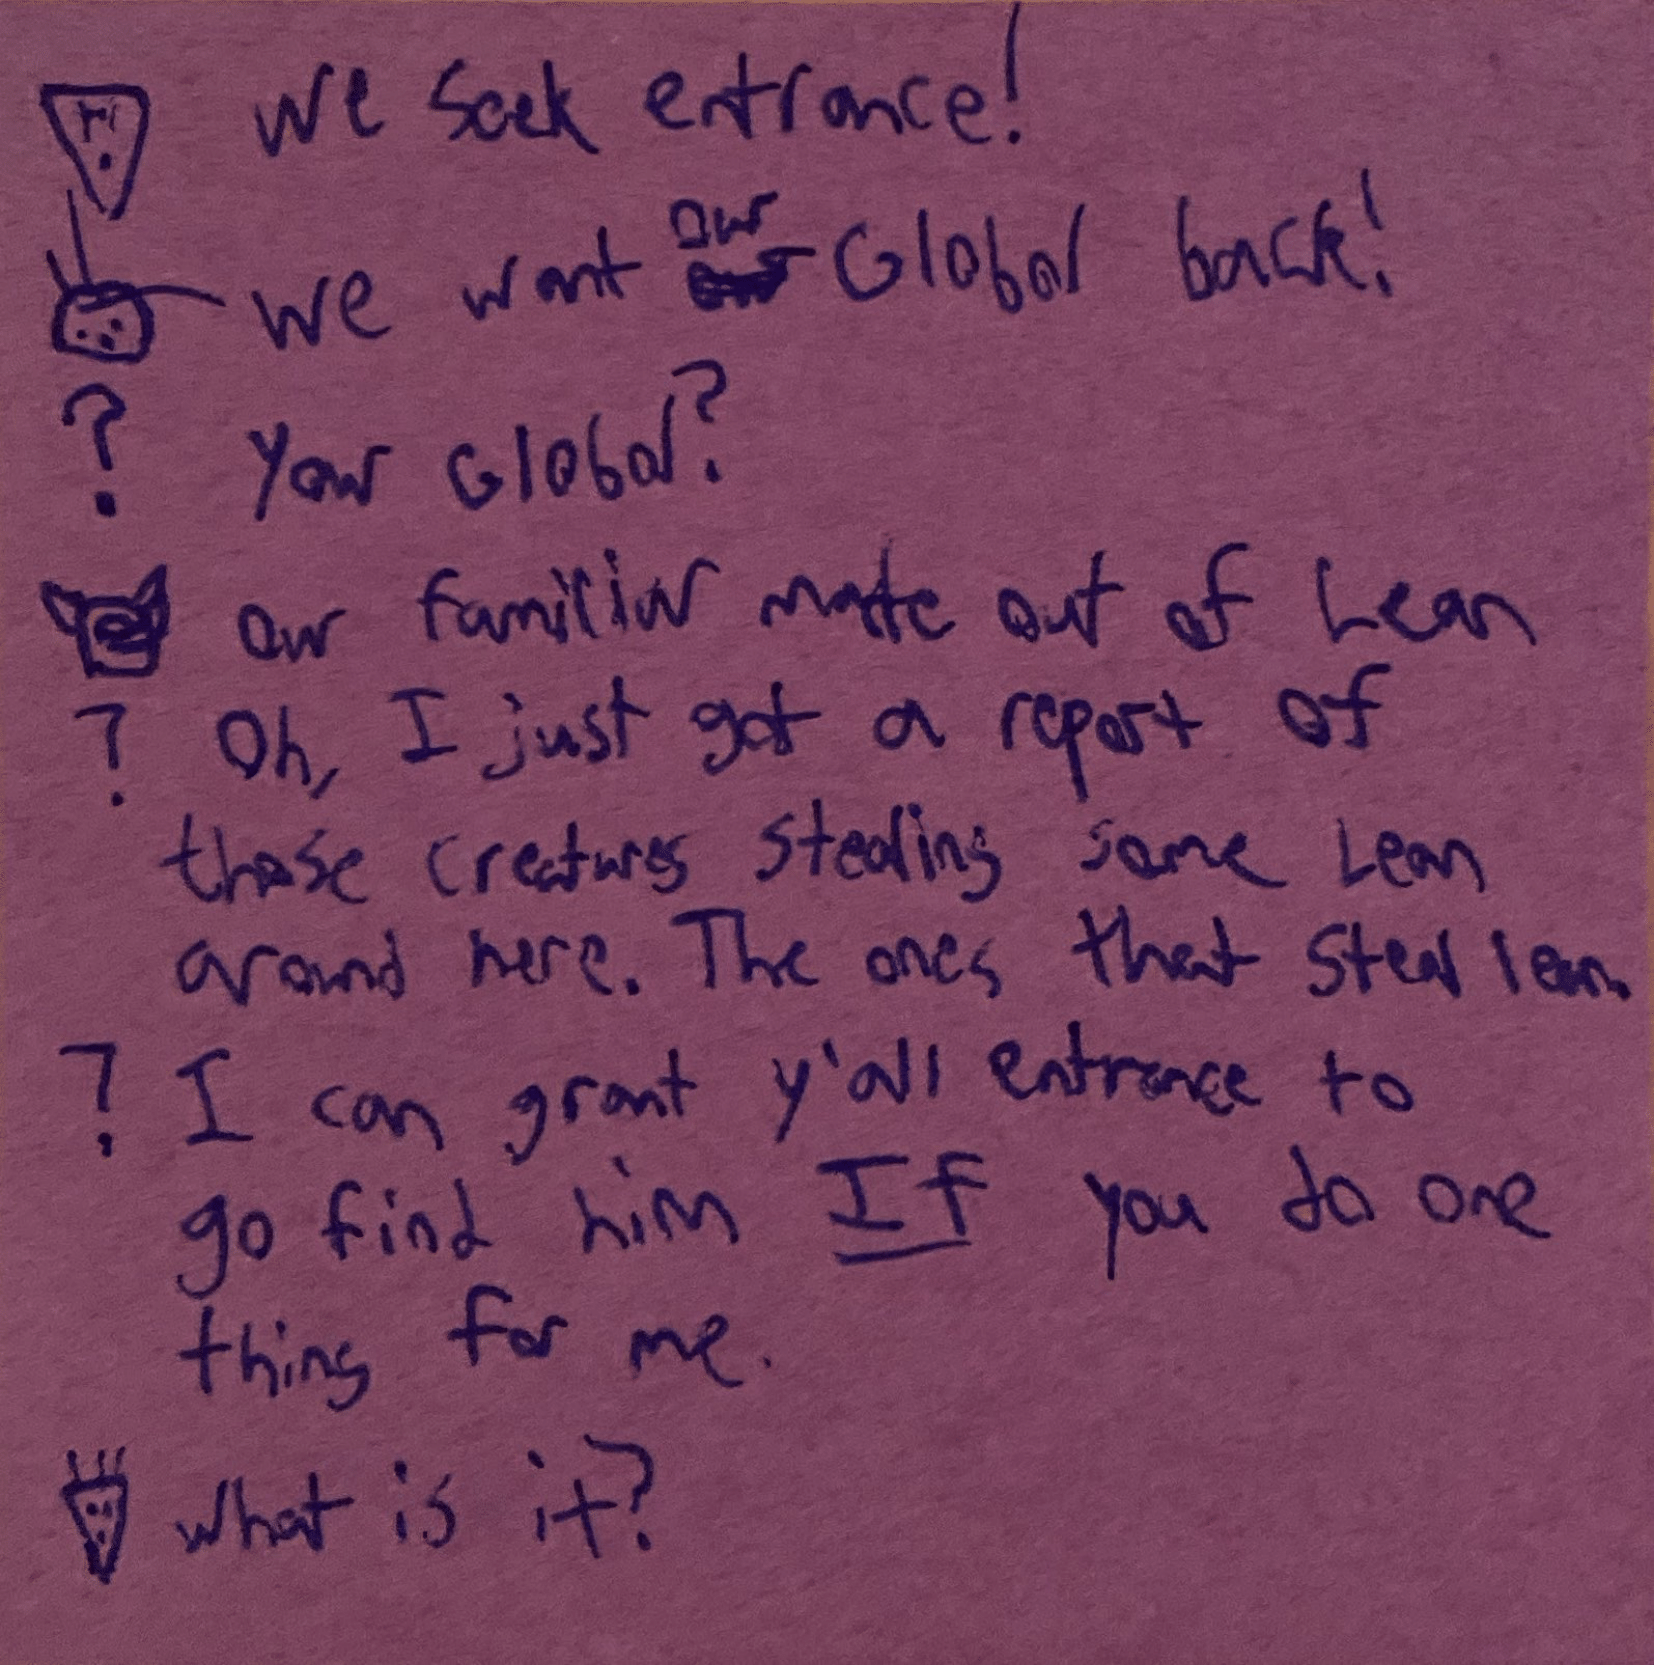 We Seek entrance!
We want our Global back!
? Your Global?
our familiar made out of Lean
? Oh, I just got a report of
those creatures stealing some Lean
around here. The ones that steal lean.
? I can grant y'all entrance to
go find him If you do one
thing for me.
What is it?